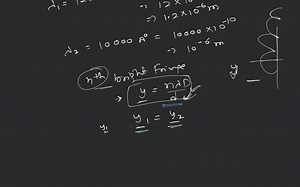 λ₁ = 12
→ 1.2 × 10⁻⁶ m
λ₂ = 10000 A° = 10000 × 10⁻¹⁰
→ 10⁻⁶ m
nth bright fringe
→ y = nλD/d
y₁ y₁ = y₂
y